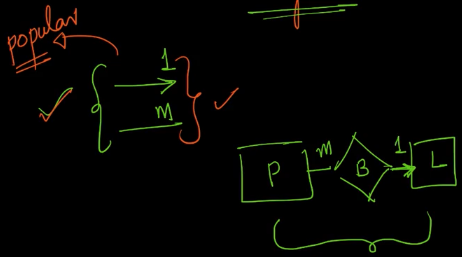 popular
1
M
P M B 1 L